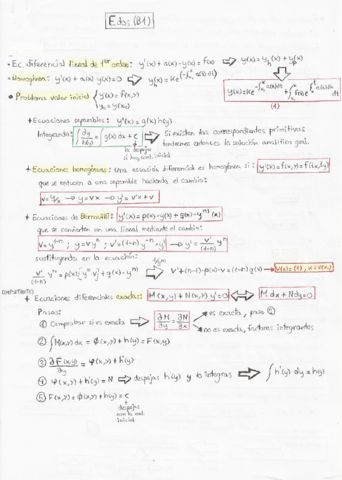 Edos (B1)
• Ec. diferencial lineal de 1er orden: y'(x) + a(x)·y(x) = f(x) ⇒ y(x) = y_h(x) + y_p(x)
• Homogénea: y'(x) + a(x)·y(x) = 0 ⇒
• Problema valor inicial { y'(x) = f(x,y)
(1)
+ Ecuaciones separables: y'(x) = g(x) h(y)
Integrando: ∫ dy/h(y) = ∫ g(x) dx + C ⇒ Si existen las correspondientes primitivas
tendremos entonces la solución analítica gral.
la despejas
si hay cond. inicial
+ Ecuaciones homogéneas: Una ecuación diferencial es homogénea si: y'(x) = f(x,y) = f(λx,λy)
que se reducen a una separable haciendo el cambio:
v = y/x → y = vx → y' = v'x + v
+ Ecuaciones de Bernouilli: y'(x) = p(x)·y + q(x)·y^n
que se convierten en una lineal mediante el cambio:
v = y^{1-n} ; y = v y^n ; v' = (1-n) y^{-n} y' → y' = v'/(1-n) y^n
sustituyendo en la ecuación:
v'/(1-n) y^n = p(x)[y^n v] + q(x)·y^n ⇒ v' + (n-1)·p(x)·v = (1-n) q(x) →
IMPORTANTE!
+ Ecuaciones diferenciales exactas: M(x,y) + N(x,y) y' = 0 ⇔ M dx + N dy = 0
Pasos:
① Comprobar si es exacta → ∂M/∂y = ∂N/∂x → es exacta, paso ②
→ no es exacta, factores integrantes
② ∫M(x,y) dx = Φ(x,y) + h(y) = F(x,y)
③ ∂F(x,y)/∂y = φ(x,y) + h'(y)
④ φ(x,y) + h'(y) = N ⇒ despejas h'(y) y lo integras ⇒ ∫ h'(y) dy = h(y)
⑤ F(x,y) = Φ(x,y) + h(y) = C
despejas
con la cond.
inicial